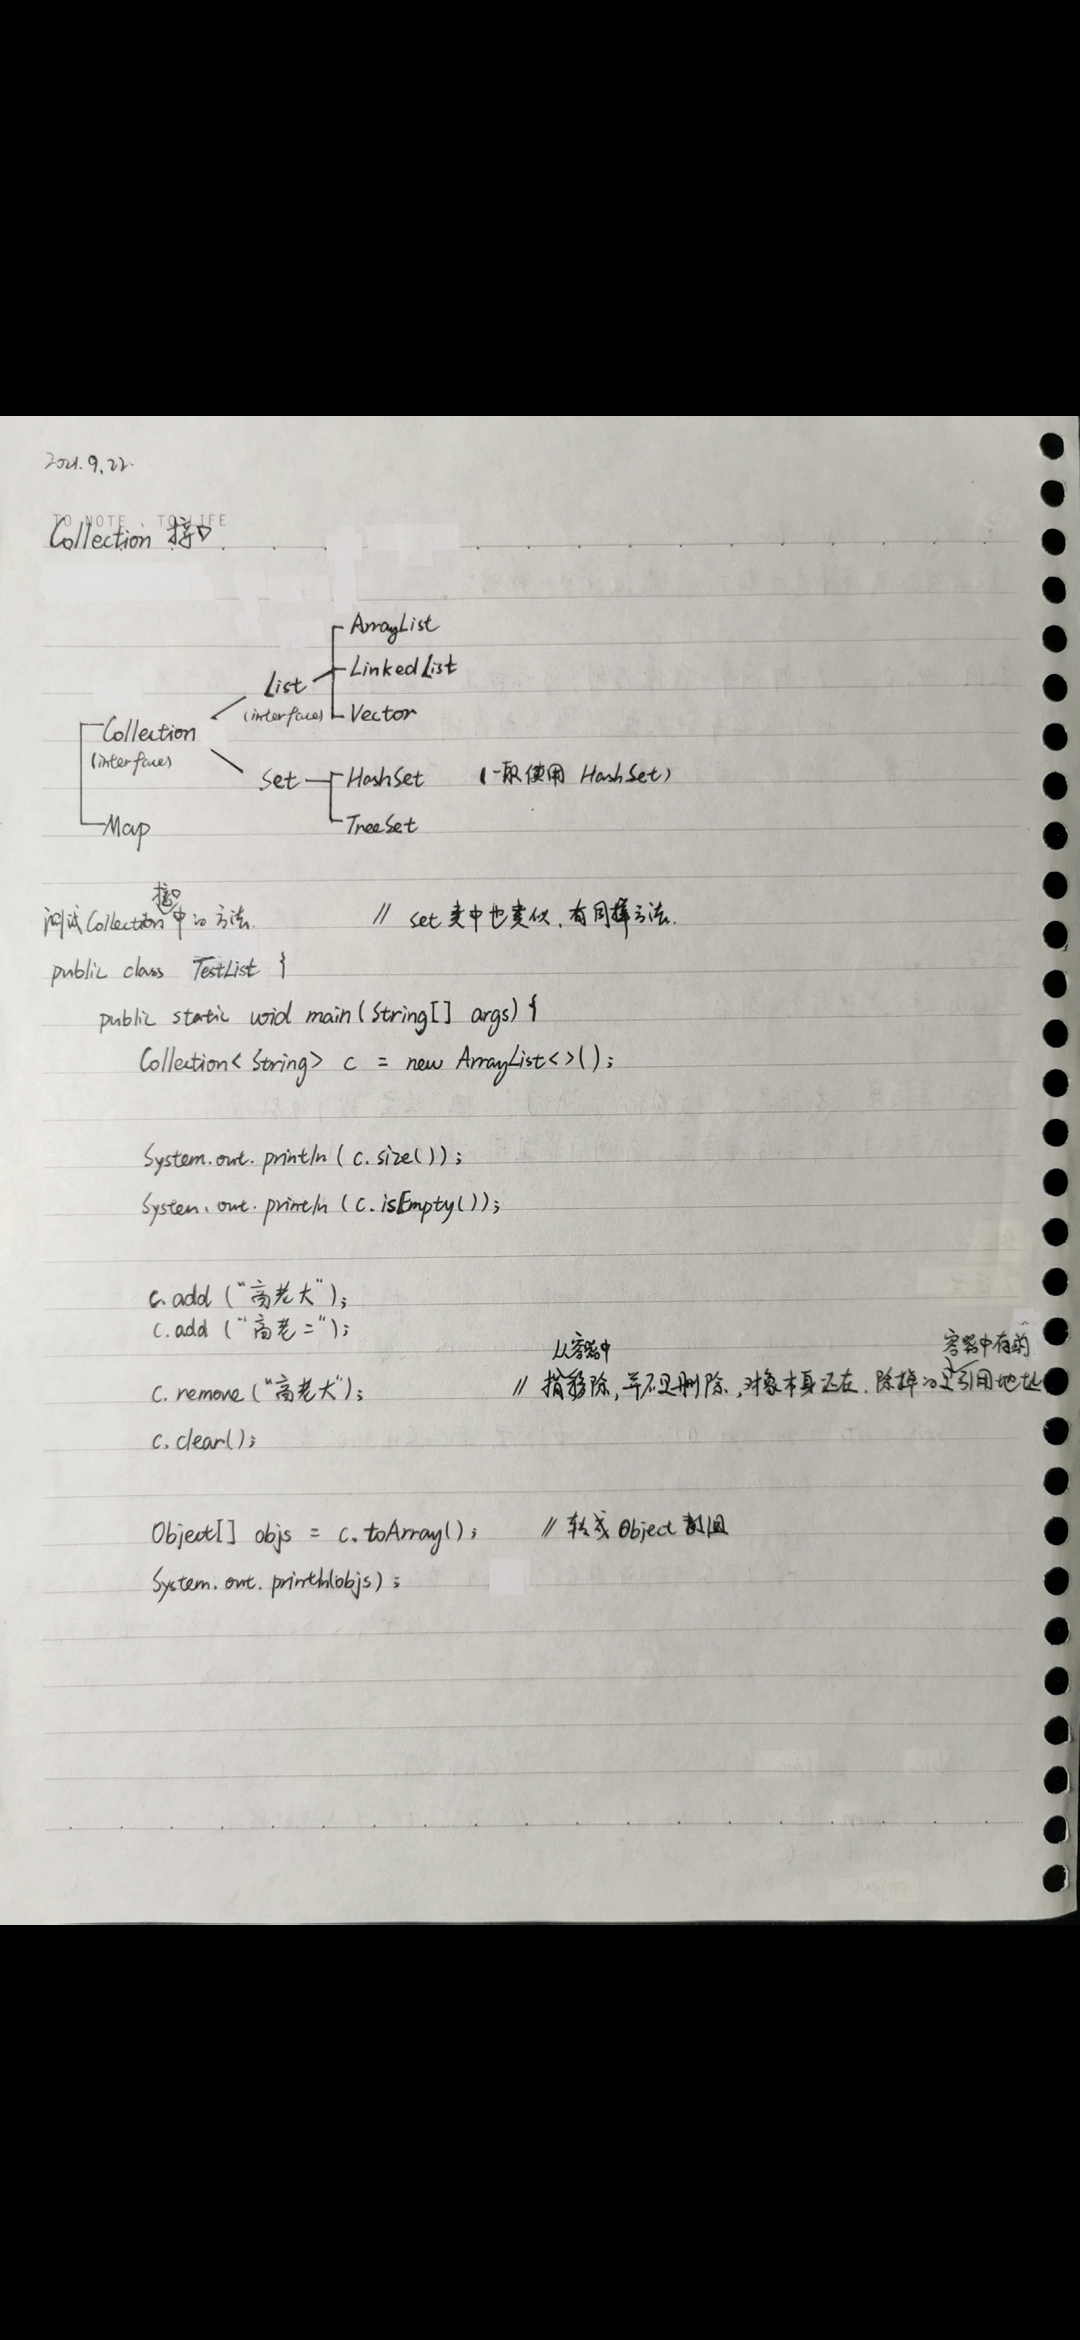 2021.9.22.
TO NOTE , TO LIFE
Collection 接口
ArrayList
LinkedList
List
(interface)
Vector
Collection
(interface)
Set
HashSet (一般使用 HashSet)
TreeSet
Map
接口
测试Collection中的方法. // Set 类中也类似,有同样方法.
public class TestList {
public static void main(String[] args) {
Collection<String> c = new ArrayList<>();
System.out.println(c.size());
System.out.println(c.isEmpty());
c.add("高老大");
c.add("高老二");
从容器中 容器中存的
c.remove("高老大"); // 指移除,并不是删除,对象本身还在.除掉的是引用地址
c.clear();
Object[] objs = c.toArray(); // 转成 Object 数组
System.out.println(objs);